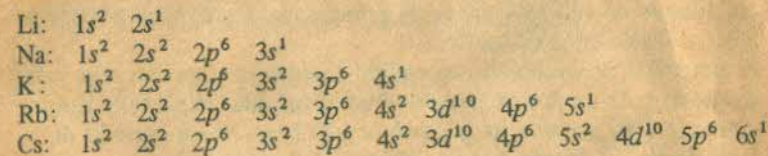 Li: 1s² 2s¹
Na: 1s² 2s² 2p⁶ 3s¹
K: 1s² 2s² 2p⁶ 3s² 3p⁶ 4s¹
Rb: 1s² 2s² 2p⁶ 3s² 3p⁶ 4s² 3d¹⁰ 4p⁶ 5s¹
Cs: 1s² 2s² 2p⁶ 3s² 3p⁶ 4s² 3d¹⁰ 4p⁶ 5s² 4d¹⁰ 5p⁶ 6s¹